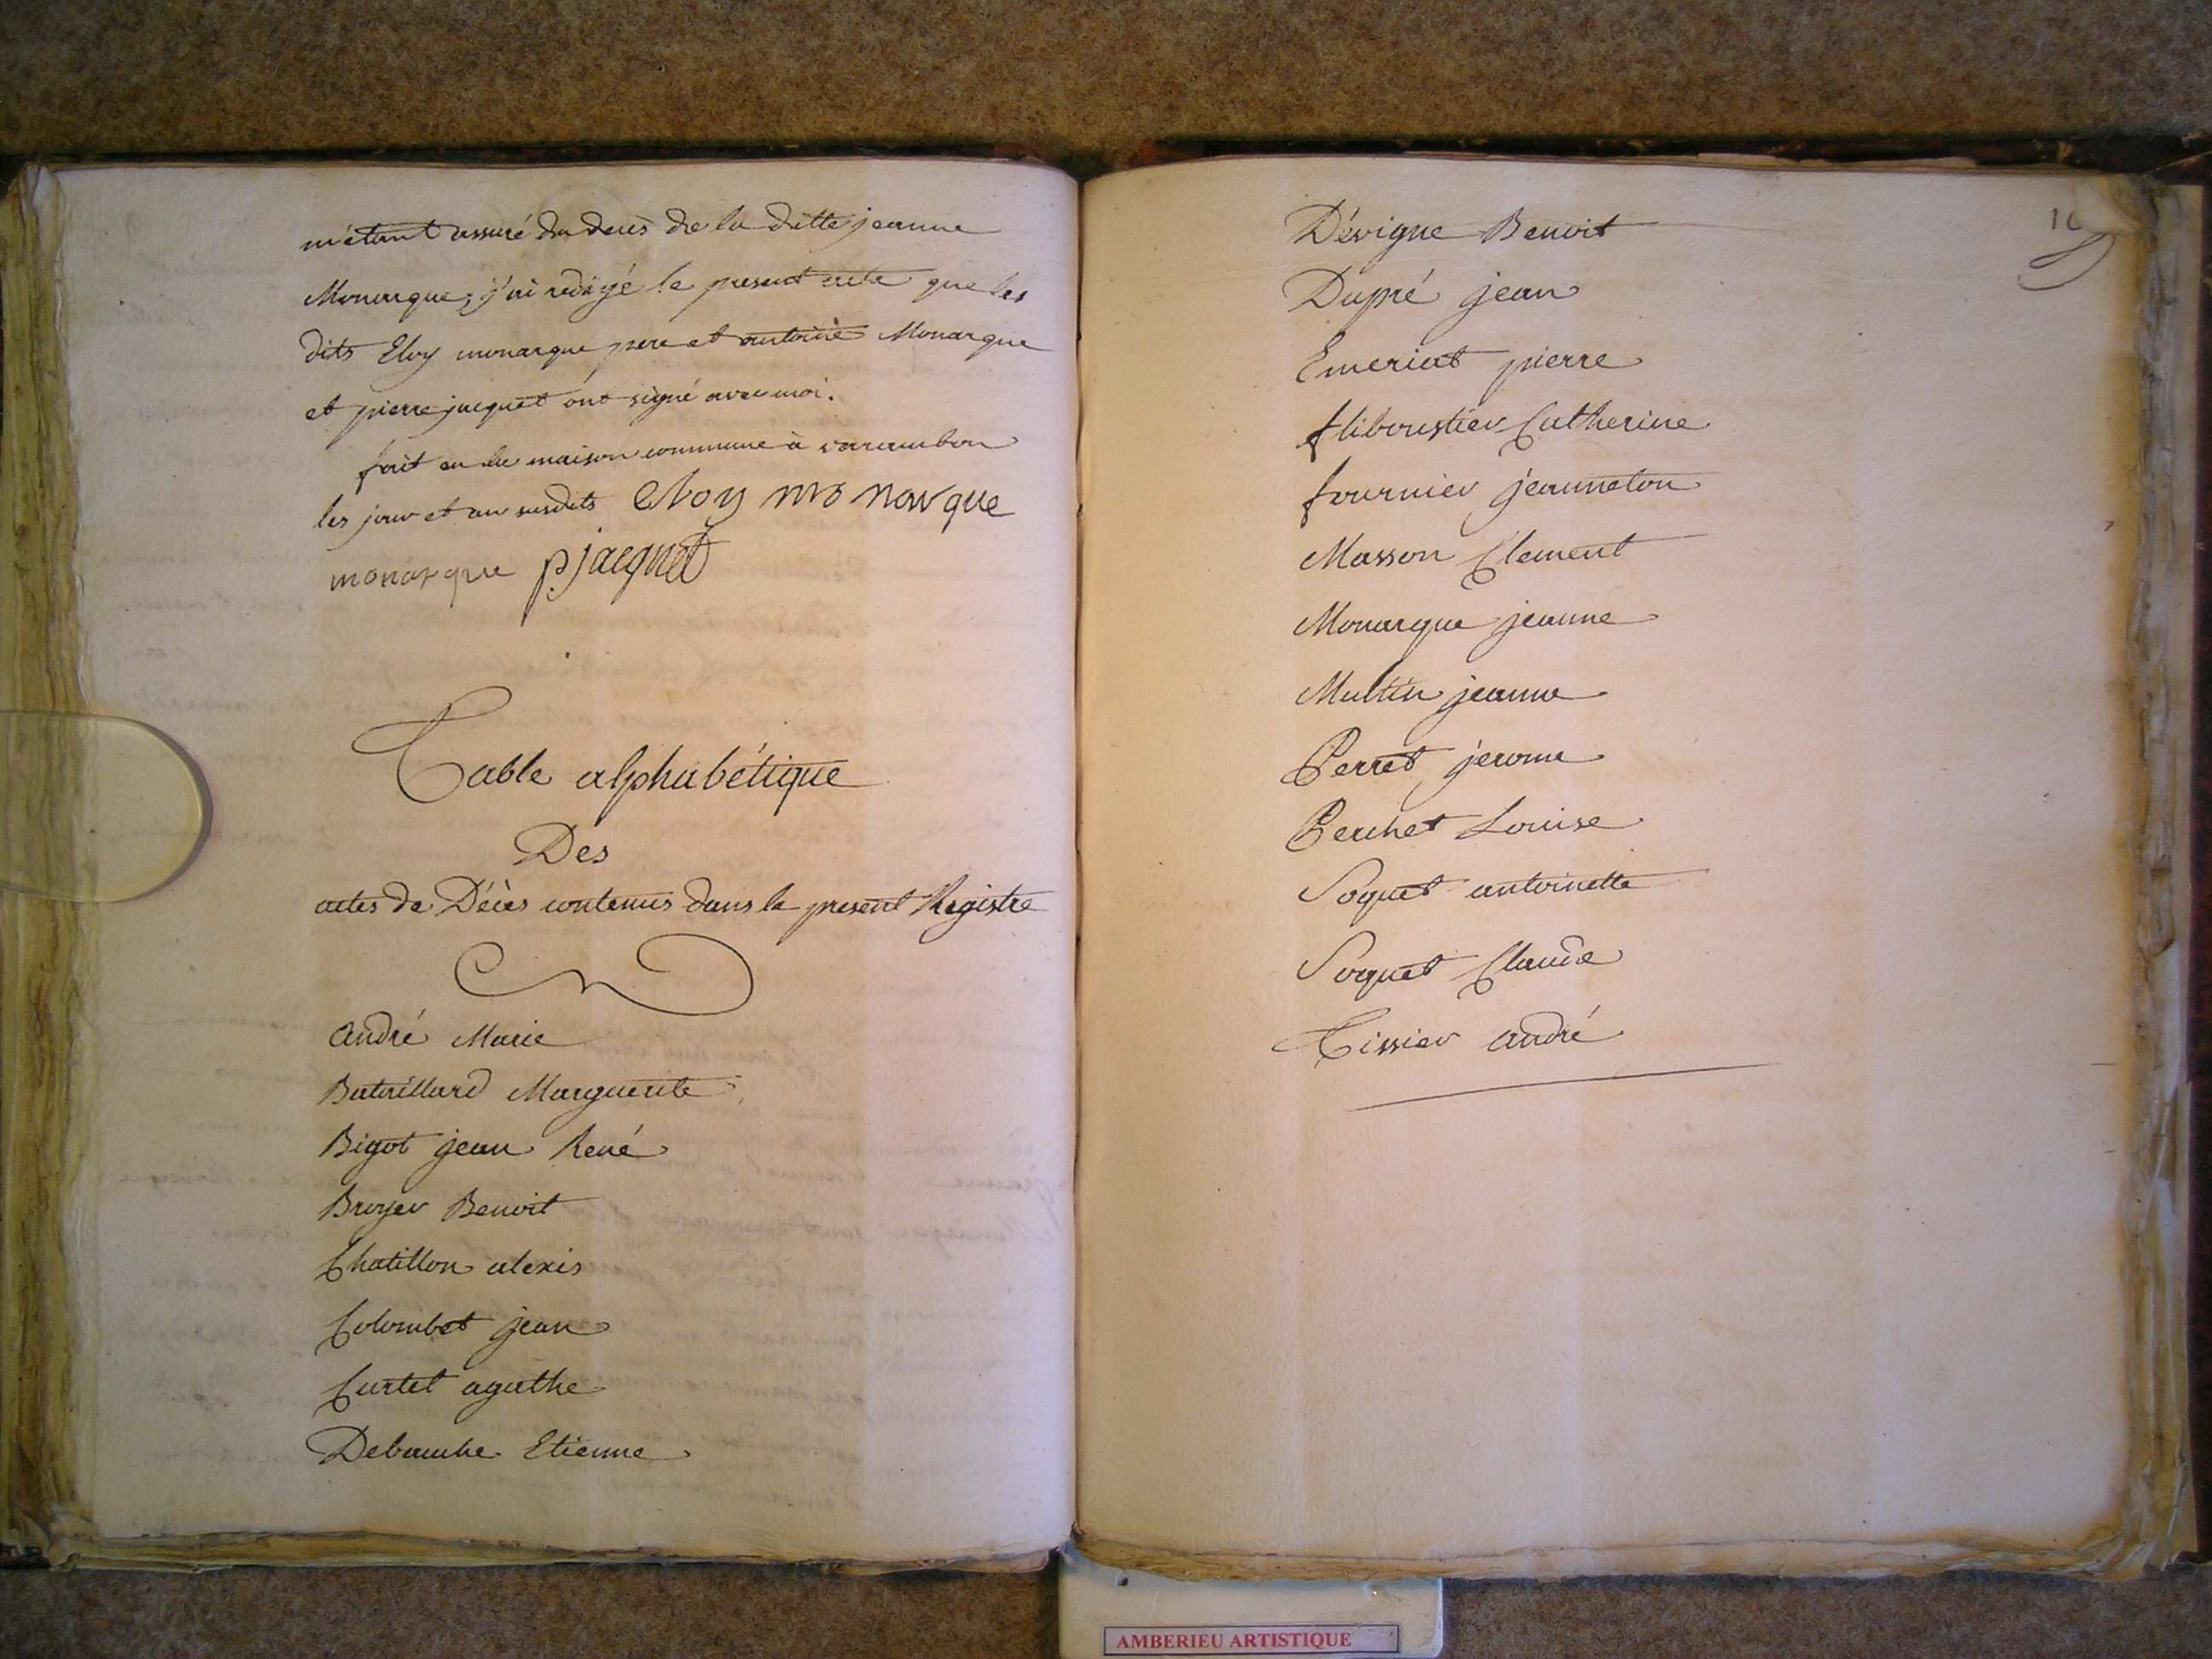 m'étant assuré du deces de la ditte jeanne
Monarque, j'ai redigé le present acte que les
dits Eloy monarque pere et antoine Monarque
et pierre jacquet ont signé avec moi.
fait en la maison commune à varambon
les jour et an susdits eloy monarque
monarque pjacquet
Table alphabétique
Des
actes de Décès contenus dans le present Registre
André Marie
Bataillard Marguerite
Bigot jean René
Broyer Benoit
Chatillon alexis
Colombet jean
Curtet agathe
Debauche Etienne
Dévigne Benoit
Dupré jean
Emeriat pierre
fliboustier Catherine
fournier jeanneton
Masson Clement
Monarque jeanne
jeanne
Perret jerome
Perchet Louise
Soquet antoinette
Soquet Claude
Tissier andré
AMBERIEU ARTISTIQUE